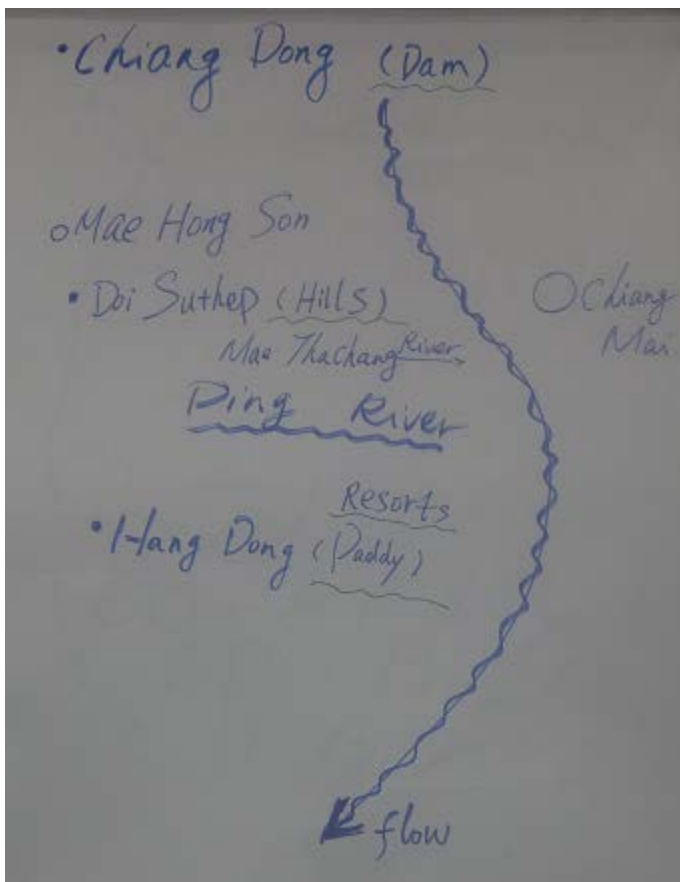 •Chiang Dong (Dam)
○Mae Hong Son
•Doi Suthep (Hills)
○Chiang
Mai
Mae Thachang River
Ping River
Resorts
•Hang Dong (Paddy)
flow